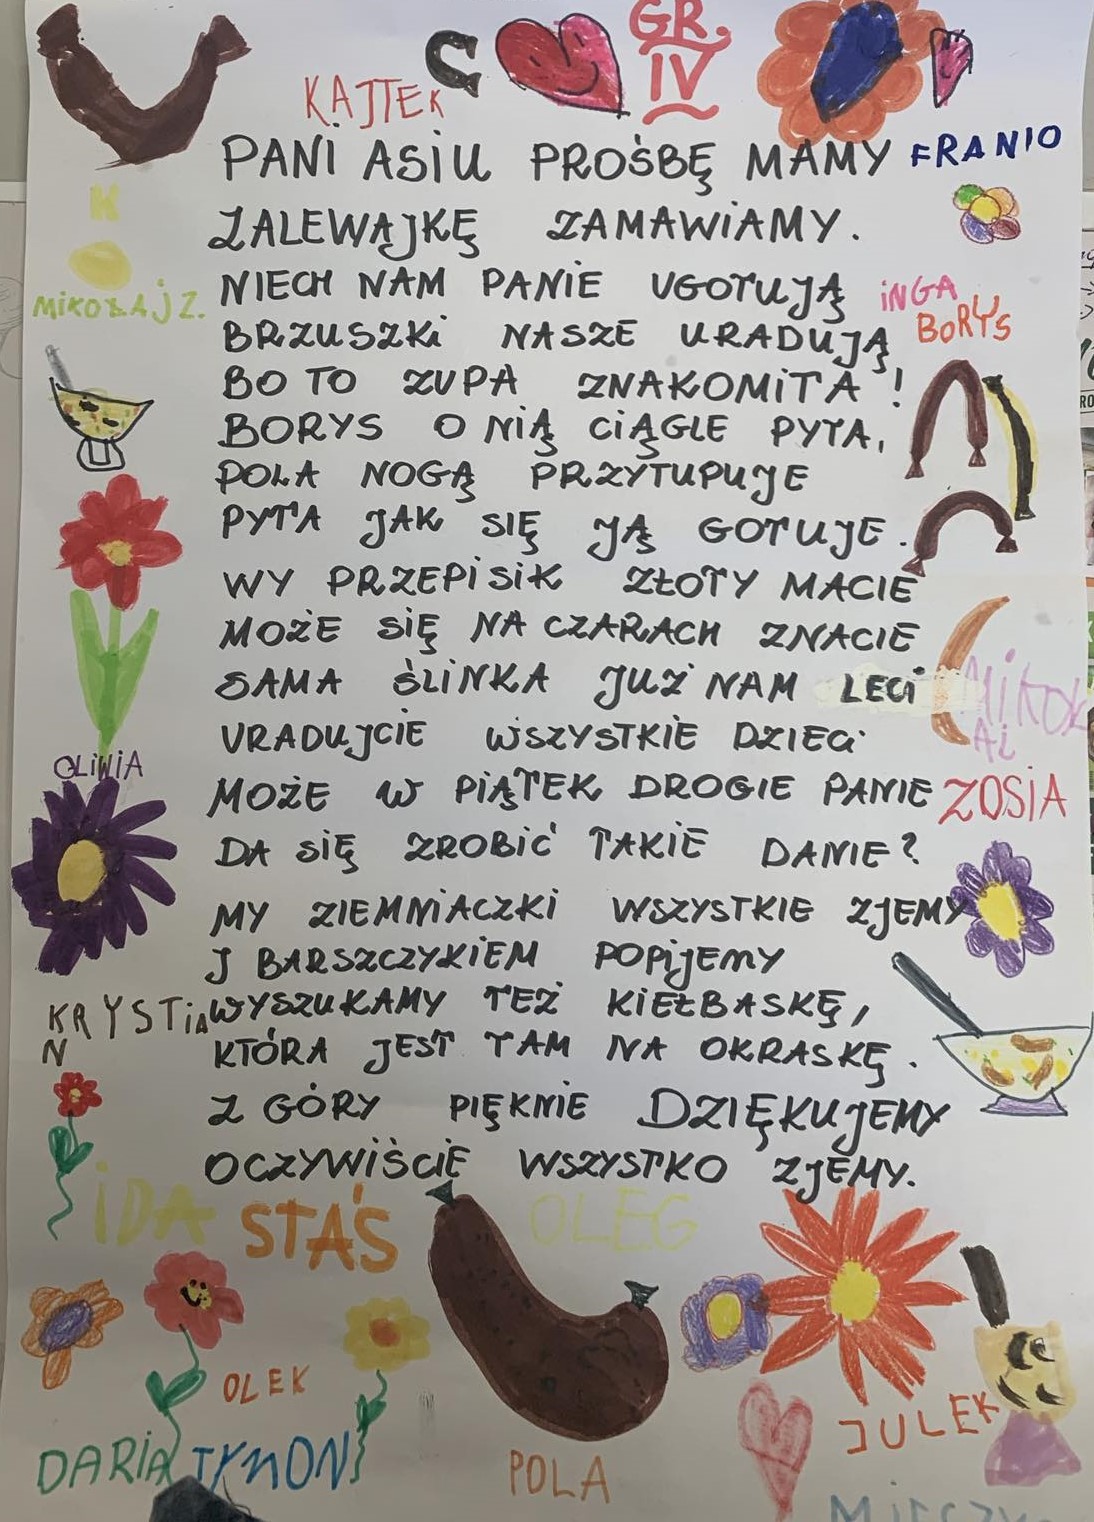 GR.
IV
KAJTEK
PANI ASIU PROŚBĘ MAMY
FRANIO
ZALEWAJKĘ ZAMAWIAMY.
K
MIKOŁAJ Z.
NIECH NAM PANIE UGOTUJĄ
INGA
BORYS
BRZUSZKI NASZE URADUJĄ
BO TO ZUPA ZNAKOMITA!
BORYS O NIĄ CIĄGLE PYTA,
POLA NOGĄ PRZYTUPUJE
PYTA JAK SIĘ JĄ GOTUJE.
WY PRZEPISIK ZŁOTY MACIE
MOŻE SIĘ NA CZARACH ZNACIE
SAMA ŚLINKA JUŻ NAM LECI
MIKOŁ
AJ
URADUJCIE WSZYSTKIE DZIECI
OLIWIA
MOŻE W PIĄTEK DROGIE PANIE
ZOSIA
DA SIĘ ZROBIĆ TAKIE DANIE?
MY ZIEMNIACZKI WSZYSTKIE ZJEMY
I BARSZCZYKIEM POPIJEMY
KRYSTIA
N
WYSZUKAMY TEŻ KIEŁBASKĘ,
KTÓRA JEST TAM NA OKRASKĘ.
Z GÓRY PIĘKNIE DZIĘKUJEMY
OCZYWIŚCIE WSZYSTKO ZJEMY.
IDA
STAŚ
OLEG
OLEK
JULEK
DARIA
TYMON
POLA